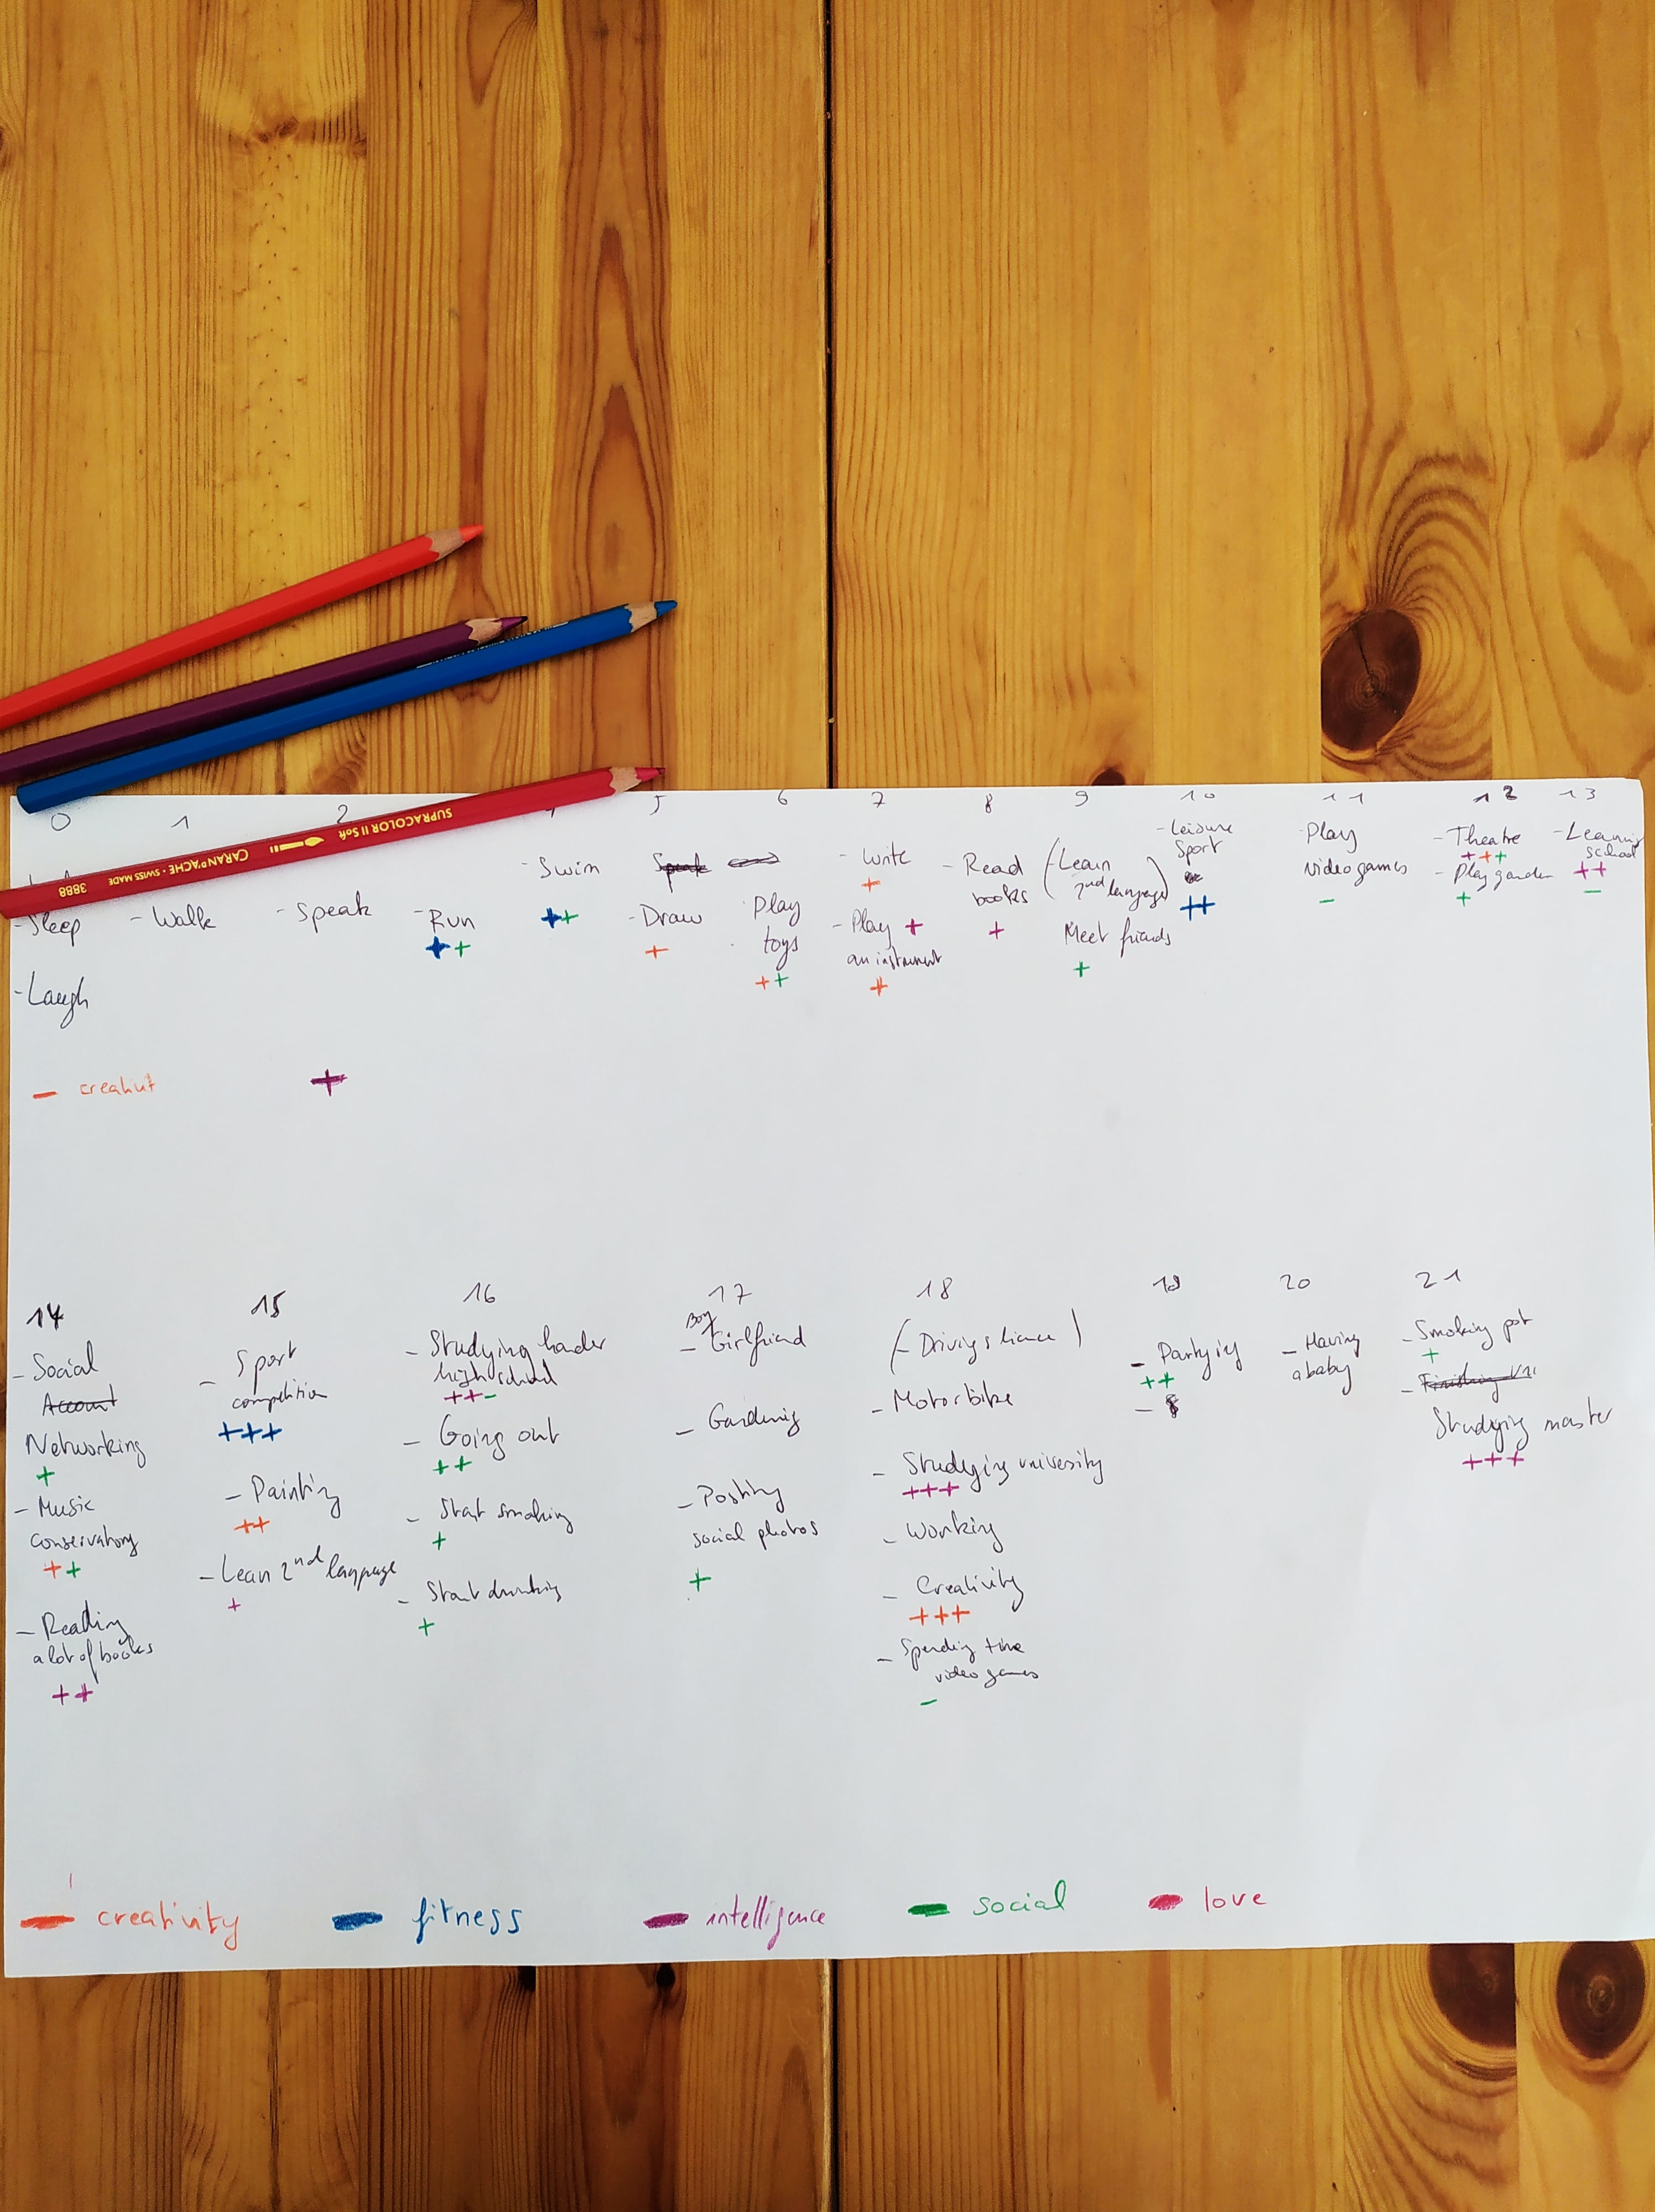 SUPRACOLOR II SOFT
CARAN D'ACHE · SWISS MADE 3888
0 1 2 5 6 7 8 9 10 11 12 13
- Sleep
- Laugh
- Walk
- Speak
- Run
++
- Swim
++
Speak
- Draw
+
Play
toys
++
- Write
+
- Play +
an instrument
+
- Read
books
+
(Learn
2nd language)
Meet friends
+
- Leisure
Sport
++
Play
videogames
-
- Theatre
+++
- Play garden
+
- Learning
school
++
-
- creativit
+
14 15 16 17 18 19 20 21
- Social
Account
Networking
+
- Music
conservatory
++
- Reading
a lot of books
++
- Sport
competition
+++
- Painting
++
- Lean 2nd language
+
- Studying harder
high school
++-
- Going out
++
- Start smoking
+
- Start drinking
+
Boy
- Girlfriend
- Gardening
- Posting
social photos
+
(- Driving licence)
- Motorbike
- Studying university
+++
- Working
- Creativity
+++
- Spending time
video games
-
- Partying
++
-
- Having
a baby
- Smoking pot
+
- Finishing Uni
Studying master
+++
- creativity - fitness - intelligence - social - love